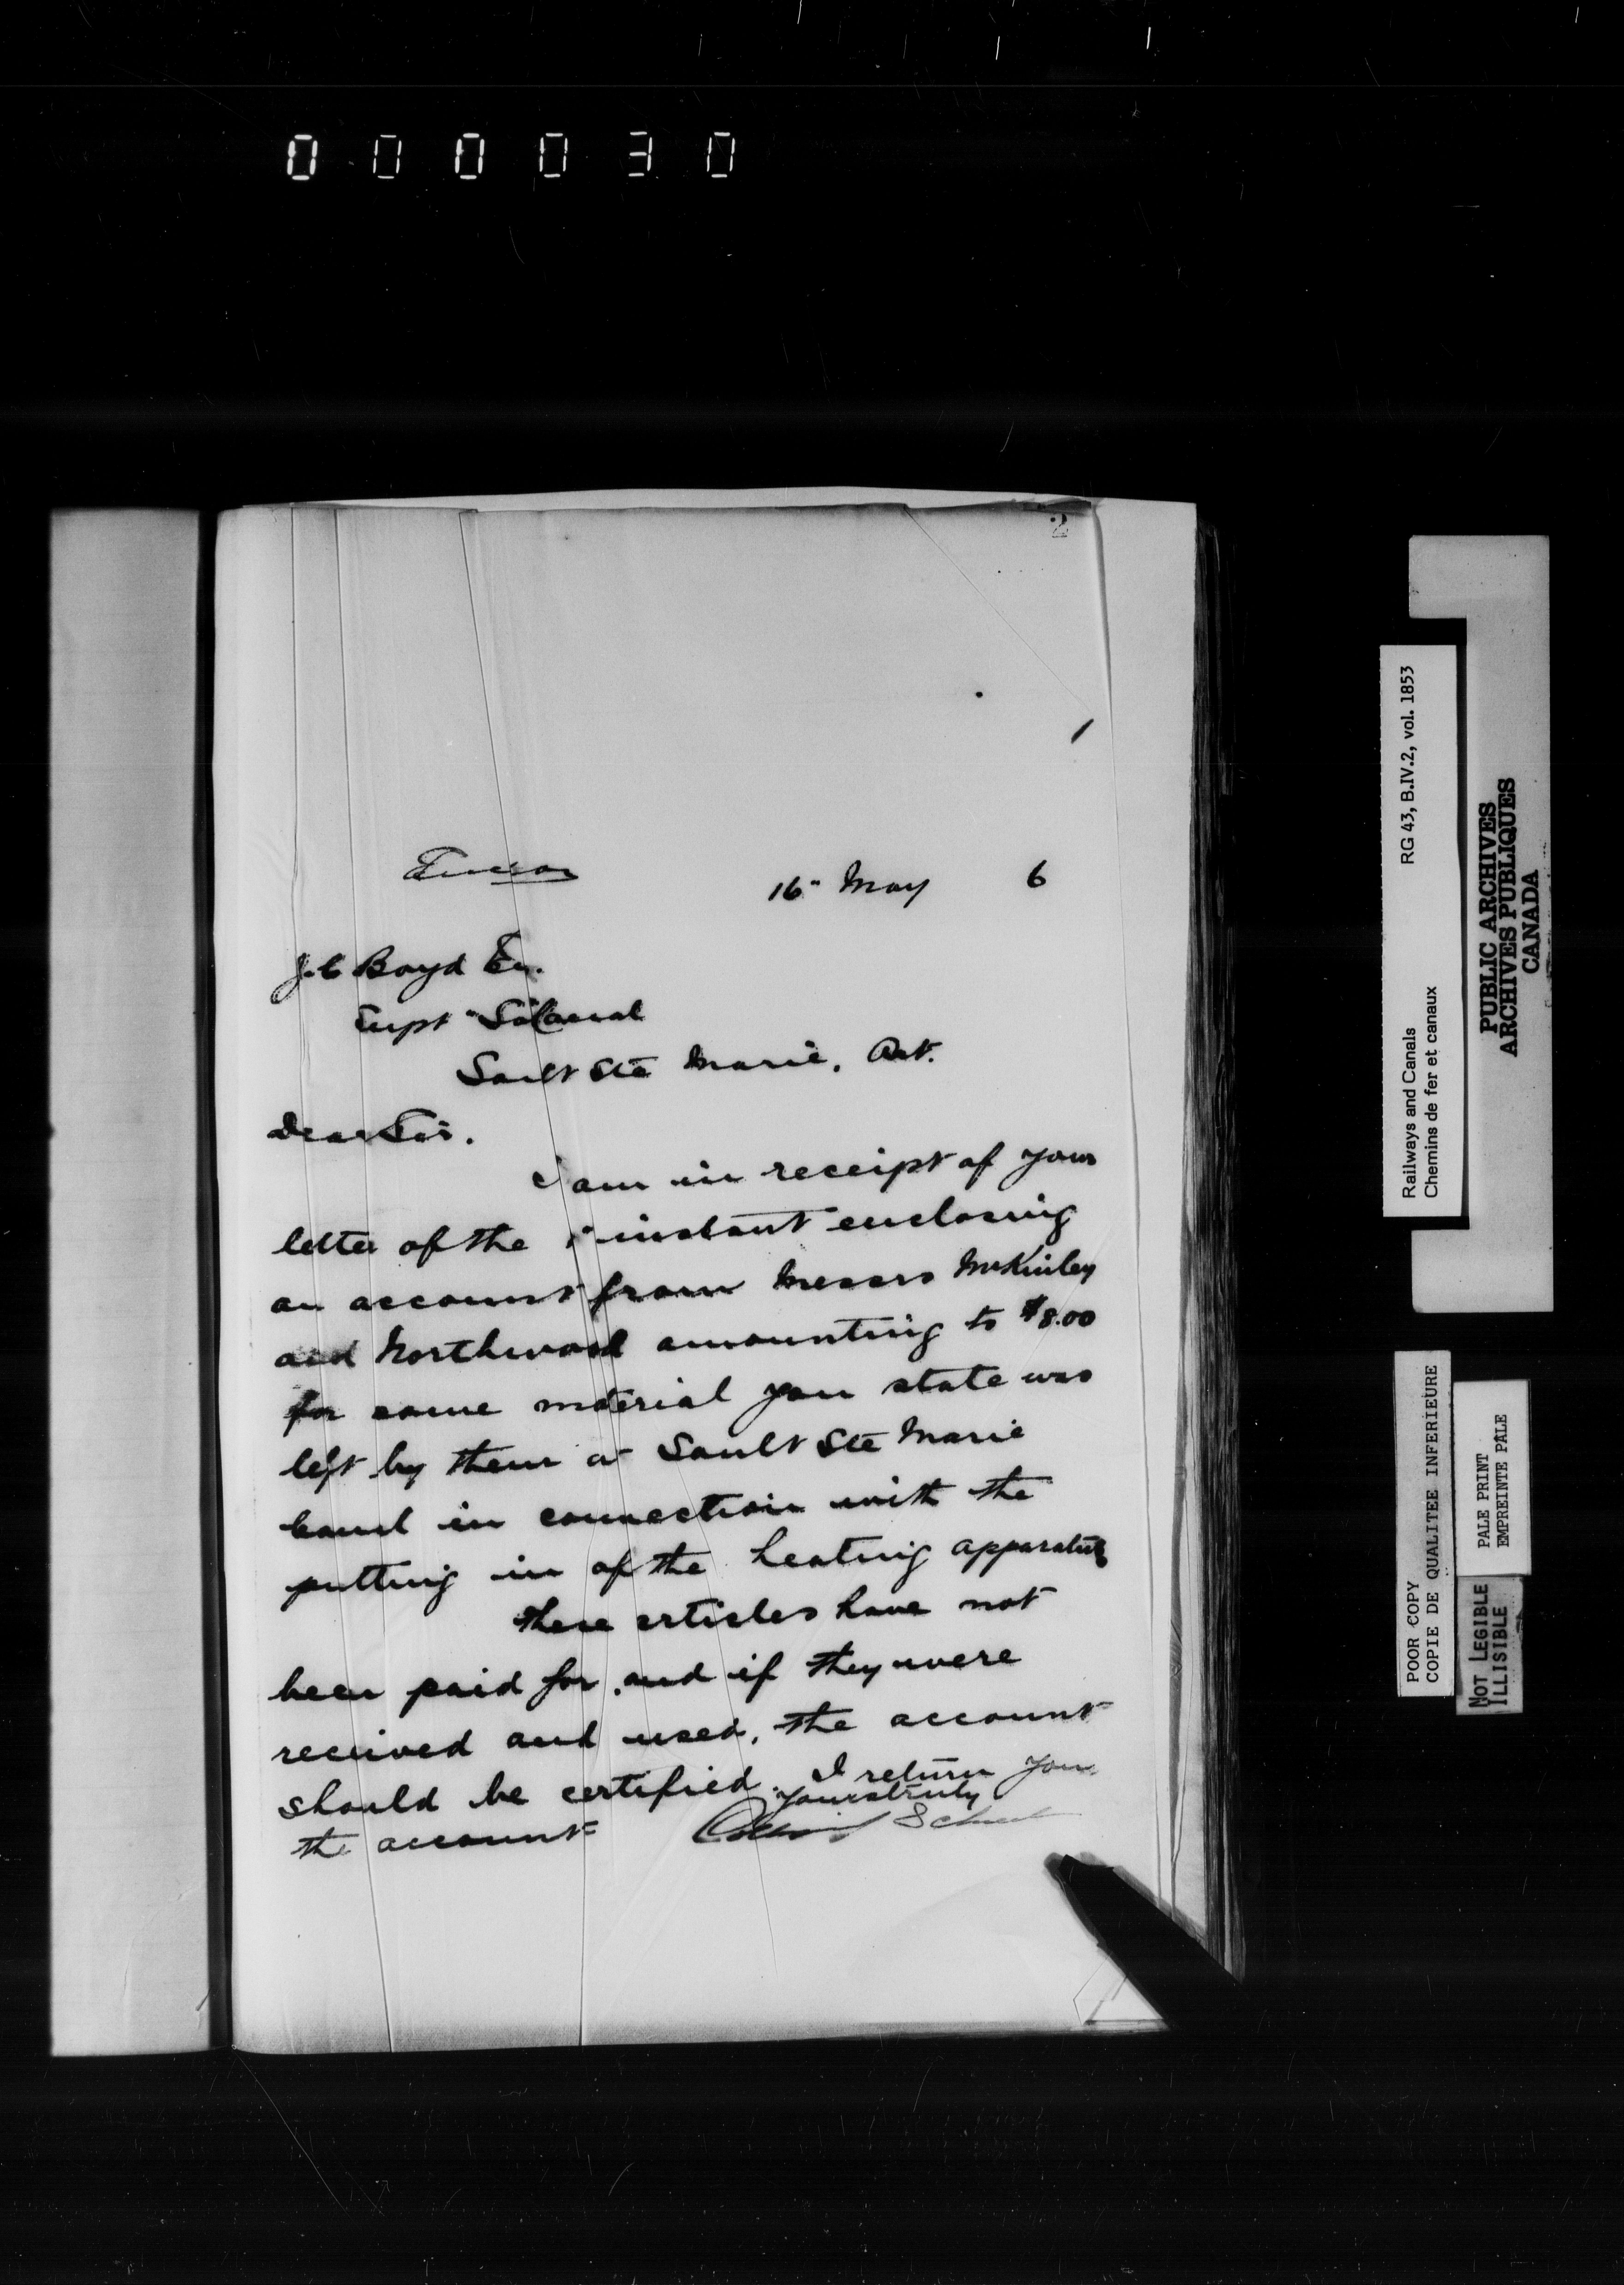 000030
2
Enclosn
16" May 6
J.C Boyd Esq.
Supt Canal
Sault Ste Marie, Ont.
Dear Sir.
I am in receipt of your
letter of the instant enclosing
an account from Messrs McKinley
and Northwood amounting to $8.00
for some material you state was
left by them at Sault Ste Marie
Canal in connection with the
putting in of the heating apparatus
These articles have not
been paid for and if they were
received and used, the account
should be certified. I return you
the account
Yours truly
Collingwood Schreiber
Railways and Canals RG 43, B.IV.2, vol. 1853
Chemins de fer et canaux
PUBLIC ARCHIVES
ARCHIVES PUBLIQUES
CANADA
POOR COPY
COPIE DE QUALITEE INFERIEURE
PALE PRINT
EMPREINTE PALE
NOT LEGIBLE
ILLISIBLE